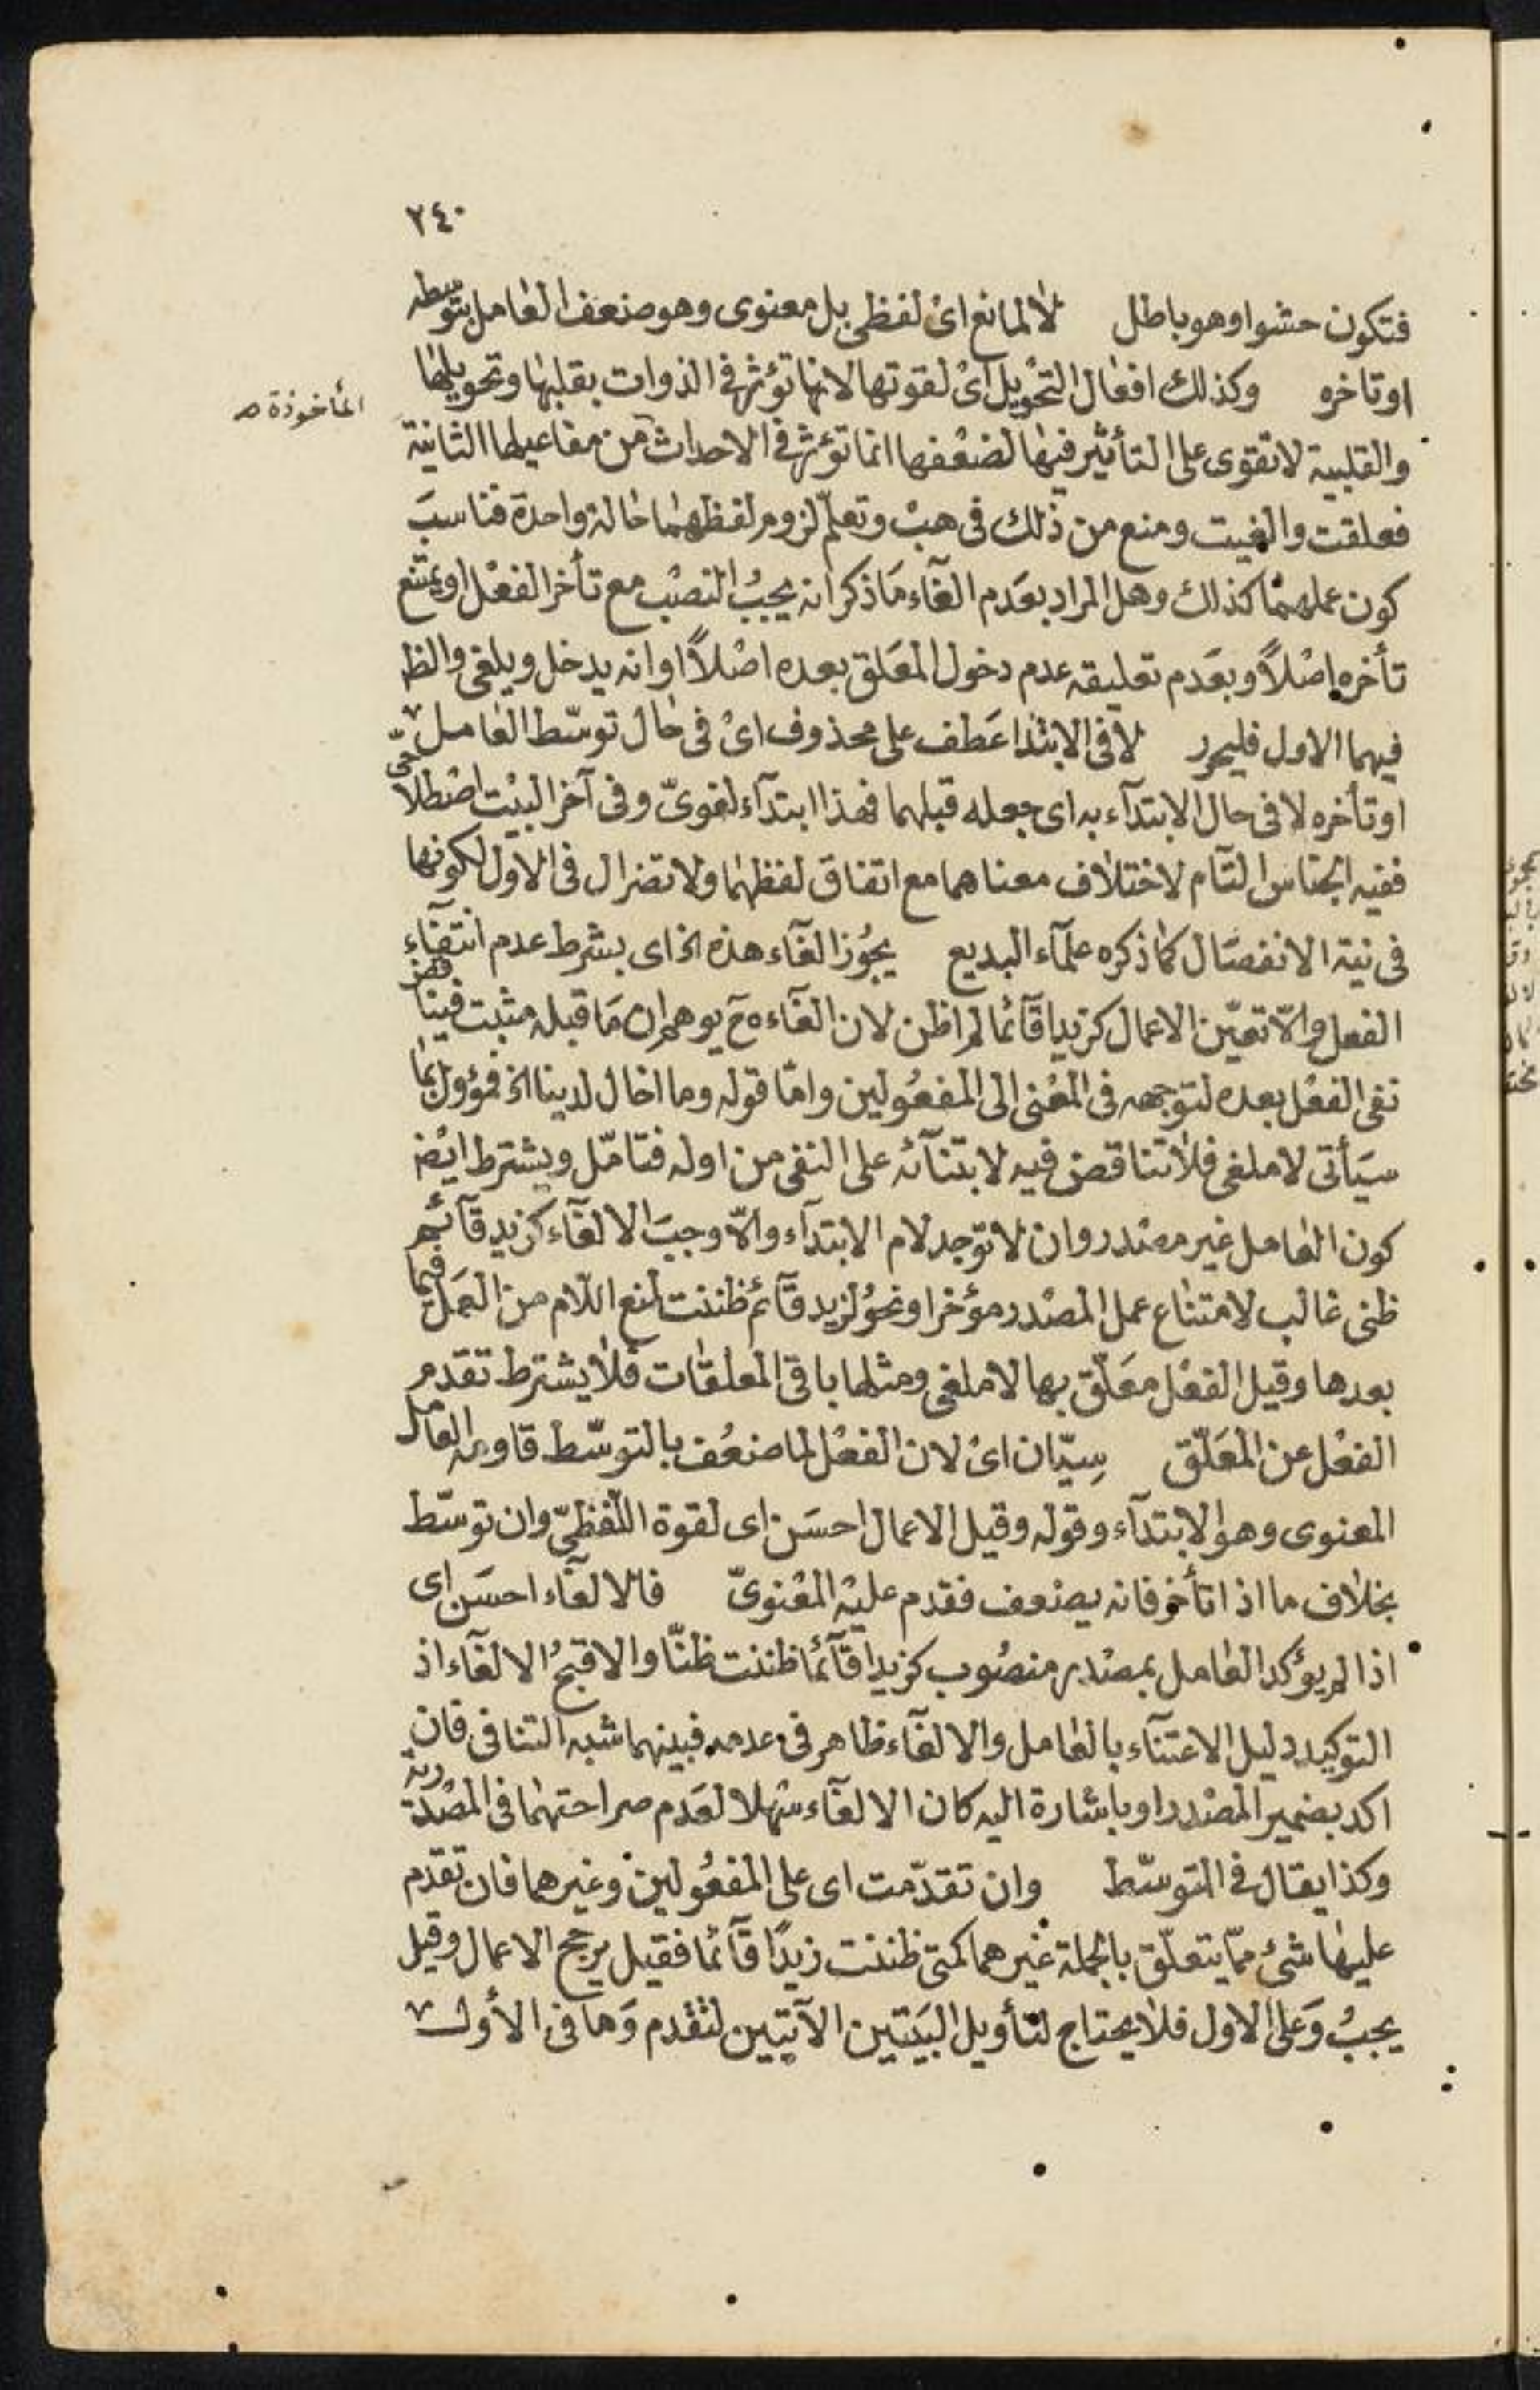 ٢٤٠
فتكون حشوا وهو باطل لا لمانع اى لفظى بل معنوى وهو ضعف العامل بتوسطه
او تاخره وكذلك افعال التحويل اى لقوتها لانها تؤثر فى الذوات بقلبها وتحويلها
المأخوذة صـ
والقلبية لا تقوى على التأثير فيها لضعفها انما تؤثر فى الاحداث من مفاعيلها الثانية
فعلقت والغيت ومنع من ذلك فى هب وتعلّم لزوم لفظهما حالة واحدة فناسب
كون عملهما كذلك وهل المراد بعدم الغآء ما ذكر انه يجب النصب مع تأخر الفعل او يمتنع
تأخره اصلاً وبعدم تعليقه عدم دخول المعلق بعده اصلاً او انه يدخل ويلغى والظ
فيهما الاول فليحرر لا فى الابتدا عطف على محذوف اى فى حال توسّط العامل
او تأخره لا فى حال الابتدآء به اى جعله قبلهما فهذا ابتدآء لغوىّ وفى آخر البيت اصطلاحىّ
ففيه الجناس التآم لاختلاف معناهما مع اتفاق لفظهما ولا تضر ال فى الاول لكونها
فى نية الانفصال كما ذكره علمآء البديع يجوز الغآء هذه الخ اى بشرط عدم انتفآء
الفعل والاّ تعيّن الاعمال كزيدا قآئما لم اظن لان الغآءه ح يوهم ان ما قبله مثبت فيناقض
نفى الفعل بعده لتوجهه فى المعنى الى المفعولين وامّا قوله وما اخال لدينا الخ فمؤول بما
سيأتى لا ملغى فلا تناقض فيه لابتنآئه على النفى من اوله فتامّل ويشترط ايض
كون العامل غير مصدر وان لا توجد لام الابتدآء والاّ وجب الالغآء كزيد قآئم
ظنى غالب لامتناع عمل المصدر مؤخرا ونحو لزيد قآئم ظننت لمنع اللام من العمل فيما
بعدها وقيل الفعل معلّق بها لا ملغى ومثلها باقى المعلقات فلا يشترط تقدم
الفعل عن المعلّق سيّان اى لان الفعل لما ضعف بالتوسّط قاومه العامل
المعنوى وهو الابتدآء وقوله وقيل الاعمال احسن اى لقوة اللفظىّ وان توسّط
بخلاف ما اذا تأخر فانه يضعف فقدم عليه المعنوىّ فالالغآء احسن اى
اذا لم يؤكد العامل بمصدر منصوب كزيدا قآئما ظننت ظنّا والا قبح الالغآء اذ
التوكيد دليل الاعتنآء بالعامل والالغآء ظاهر فى عدمه فبينهما شبه التنافى فان
اكد بضمير المصدر او باشارة اليه كان الالغآء سهلا لعدم صراحتهما فى المصدرية
وكذا يقال فى المتوسّط وان تقدّمت اى على المفعولين وغيرهما فان تقدم
عليها شئ ممّا يتعلّق بالجملة غيرهما كمتى ظننت زيدًا قآئما فقيل يرجح الاعمال وقيل
يجب وعلى الاول فلا يحتاج لتأويل البيتين الآتيين لتقدم وما فى الأول